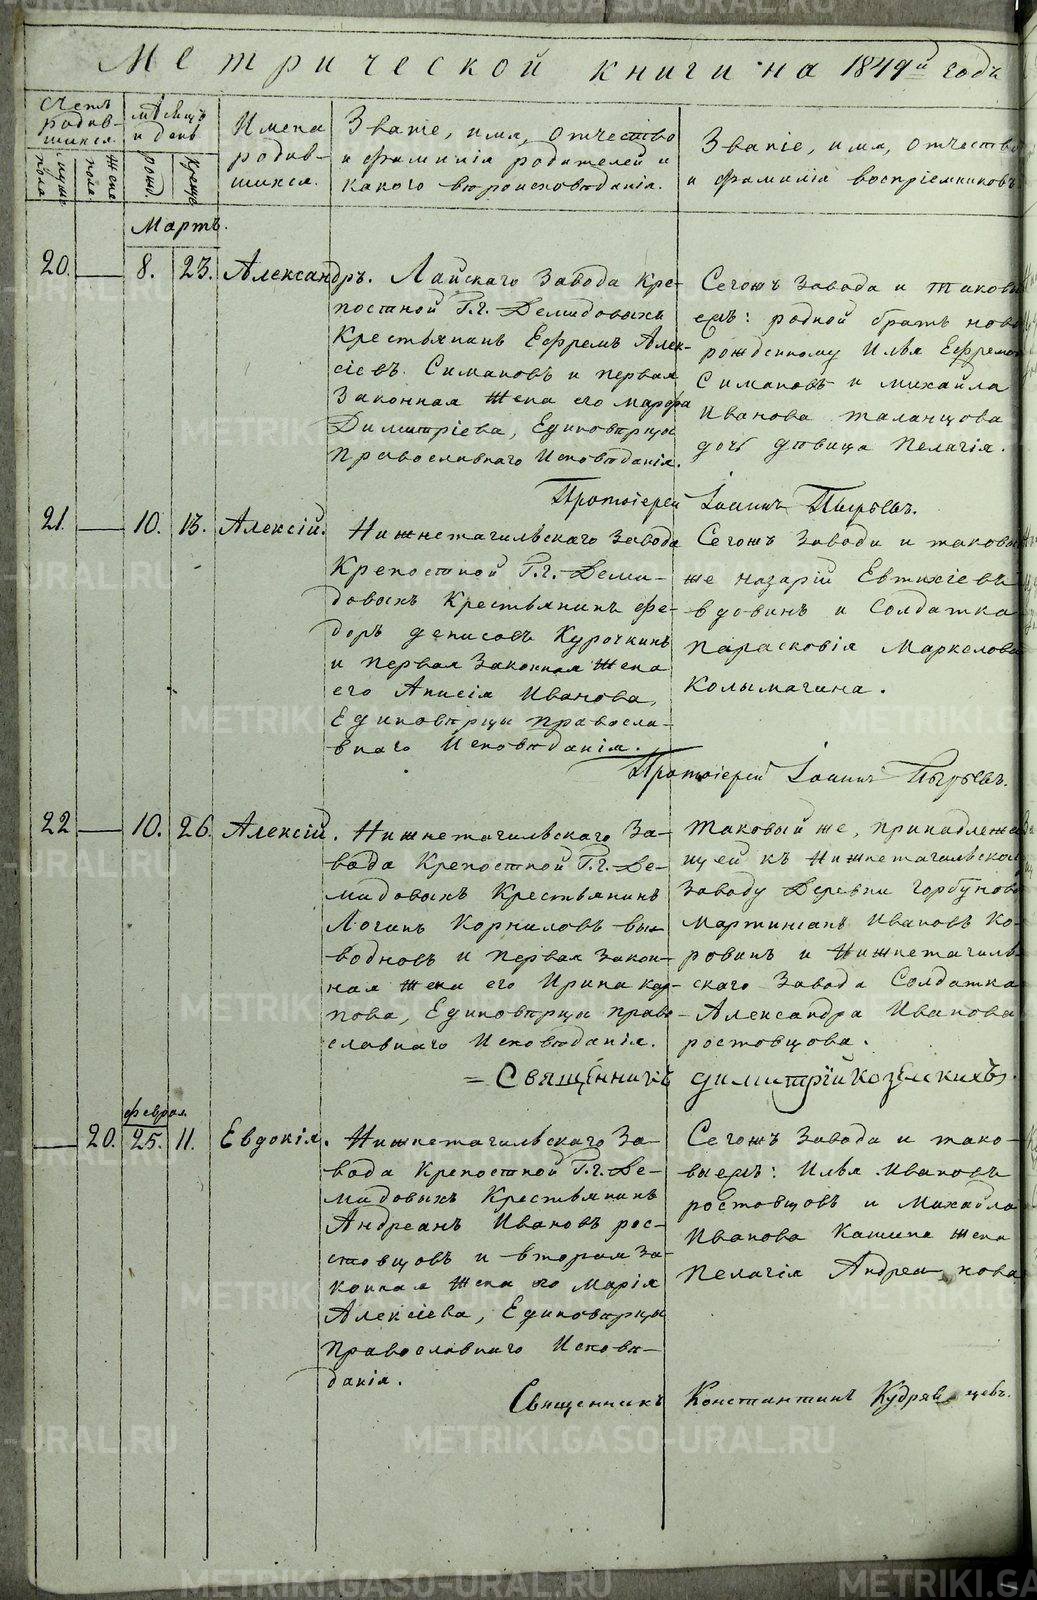 Метрической книги на 1849й годъ
Счетъ родив-шихся.
мѣсяцъ и день
Имена родив-шихся.
Званіе, имя, отчество и фамилія родителей и какого вѣроисповѣданія.
Званіе, имя, отчество и фамилія воспріемниковъ
муж: пола
жен: пола
рожд.
крещ.
Мартъ.
20. — 8. 23. Александръ.
Лайскаго Завода Кре-
постной Г.г. Демидовыхъ
Крестьянинъ Ефремъ Алек-
сіевъ Симановъ и первая
Законная Жена его Марѳа
Димитріева, Единовѣрцы
Православнаго Исповѣданія.
Сегожъ Завода и таковы
ежъ: родной братъ ново
рожденному Илья Ефремо
Симановъ и Михайла
Иванова Таланцова
дочь дѣвица Пелагія.
Протоіерей Іоаннъ Пырьевъ.
21. — 10. 13. Алексій.
Нижнетагильскаго Завода
Крепостной Г.г. Деми-
довыхъ Крестьянинъ Фе-
доръ Денисовъ Курочкинъ
и первая Законная Жена
его Анисія Иванова,
Единовѣрцы Правосла-
внаго Исповѣданія.
Сегожъ Завода и таковы
же Назарій Евтихіевъ
Вдовинъ и Солдатка
Парасковія Маркелова
Колымагина.
Протоіерей Іоаннъ Пырьевъ.
22 — 10. 26. Алексій.
Нижнетагильскаго За-
вода Крепостной Г.г. Де-
мидовыхъ Крестьянинъ
Логинъ Корниловъ Вы-
водновъ и Первая Закон-
ная Жена его Ирина Кар-
пова, Единовѣрцы Право-
славнаго Исповѣданія.
Таковый же, принадлежа
щей къ Нижнетагильском
Заводу Деревни Горбуново
Мартиніанъ Ивановъ Ко-
ровинъ и Нижнетагиль-
скаго Завода Солдатка
Александра Иванова
Ростовцова.
= Священникъ Димитрій Козелскихъ.
Феврал.
— 20. 25. 11. Евдокія.
Нижнетагильскаго За-
вода Крепостной Г.г. Де-
мидовыхъ Крестьянинъ
Андреанъ Ивановъ Рос-
товцовъ и вторая За-
конная Жена его Марія
Алексіева, Единоверцы
Православнаго Исповѣ-
данія.
Сегожъ Завода и тако-
выежъ: Илья Ивановъ
Ростовцовъ и Михайла
Иванова Кашина Жена
Пелагія Андреа нова
Священникъ Константинъ Кудряв цевъ.
METRIKI.GASO-URAL.RU